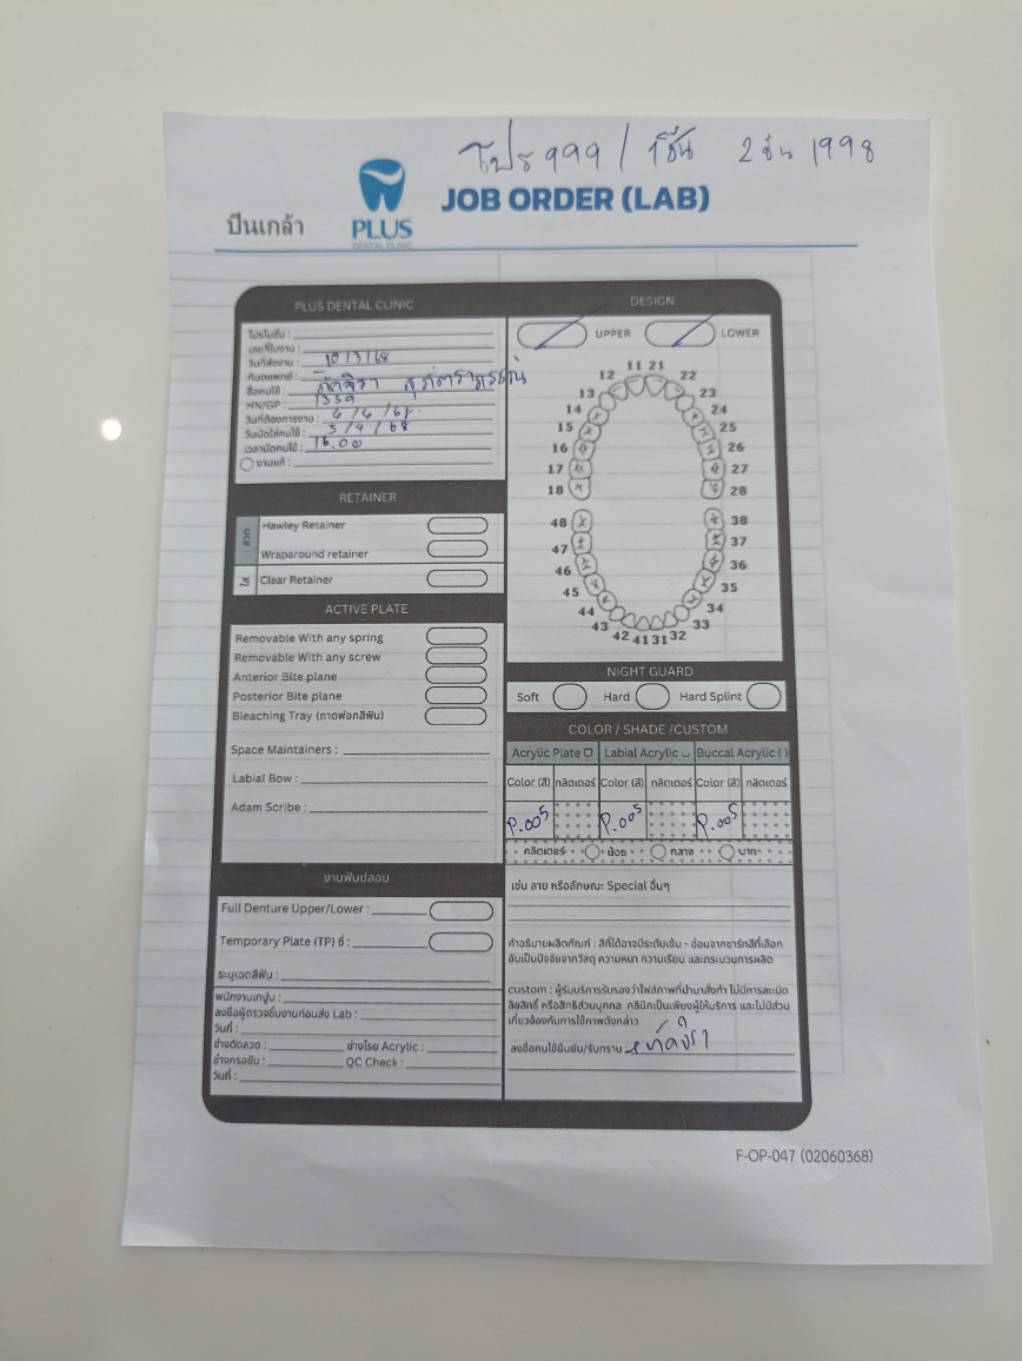 โปร ๑๑๑ / 1ชิ้น 2 ชิ้น 1998
ปิ่นเกล้า
PLUS
DENTAL CLINIC
JOB ORDER (LAB)
PLUS DENTAL CLINIC
โปรโมชั่น :
เลขที่ใบงาน :
วันที่ส่งงาน : 10/3/68
ทันตแพทย์ :
ชื่อคนไข้ :
HN/GP : 1339
วันที่ต้องการงาน : 4/4/68
วันนัดใส่คนไข้ : 5/4/68
เวลานัดคนไข้ : 16.00
งานแก้ :
RETAINER
Hawley Retainer
Wraparound retainer
Clear Retainer
ACTIVE PLATE
Removable With any spring
Removable With any screw
Anterior Bite plane
Posterior Bite plane
Bleaching Tray (ถาดฟอกสีฟัน)
Space Maintainers :
Labial Bow :
Adam Scribe :
งานฟันปลอม
Full Denture Upper/Lower :
Temporary Plate (TP) ซี่ :
ระบุเฉดสีฟัน :
พนักงานเทปูน :
ลงชื่อผู้ตรวจชิ้นงานก่อนส่ง Lab :
วันที่ :
ช่างดัดลวด : ช่างโรย Acrylic :
ช่างกรอขัด : QC Check :
วันที่ :
DESIGN
UPPER LOWER
11 21
12 22
13 23
14 24
15 25
16 26
17 27
18 28
48 38
47 37
46 36
45 35
44 34
43 33
42 41 31 32
NIGHT GUARD
Soft Hard Hard Splint
COLOR / SHADE /CUSTOM
Acrylic Plate Labial Acrylic Buccal Acrylic ( )
Color (สี) กลิตเตอร์ Color (สี) กลิตเตอร์ Color (สี) กลิตเตอร์
P.005 P.005 P.005
กลิตเตอร์ น้อย กลาง มาก
เช่น ลาย หรือลักษณะ Special อื่นๆ
คำอธิบายผลิตภัณฑ์ : สีที่ได้อาจมีระดับเข้ม - อ่อนจากชาร์ทสีที่เลือก
อันเป็นปัจจัยจากวัสดุ ความหนา ความเรียบ และกระบวนการผลิต
custom : ผู้รับบริการรับรองว่าไฟล์ภาพที่นำมาสั่งทำ ไม่มีการละเมิด
ลิขสิทธิ์ หรือสิทธิส่วนบุคคล คลินิกเป็นเพียงผู้ให้บริการ และไม่มีส่วน
เกี่ยวข้องกับการใช้ภาพดังกล่าว
ลงชื่อคนไข้ยืนยัน/รับทราบ :
F-OP-047 (02060368)